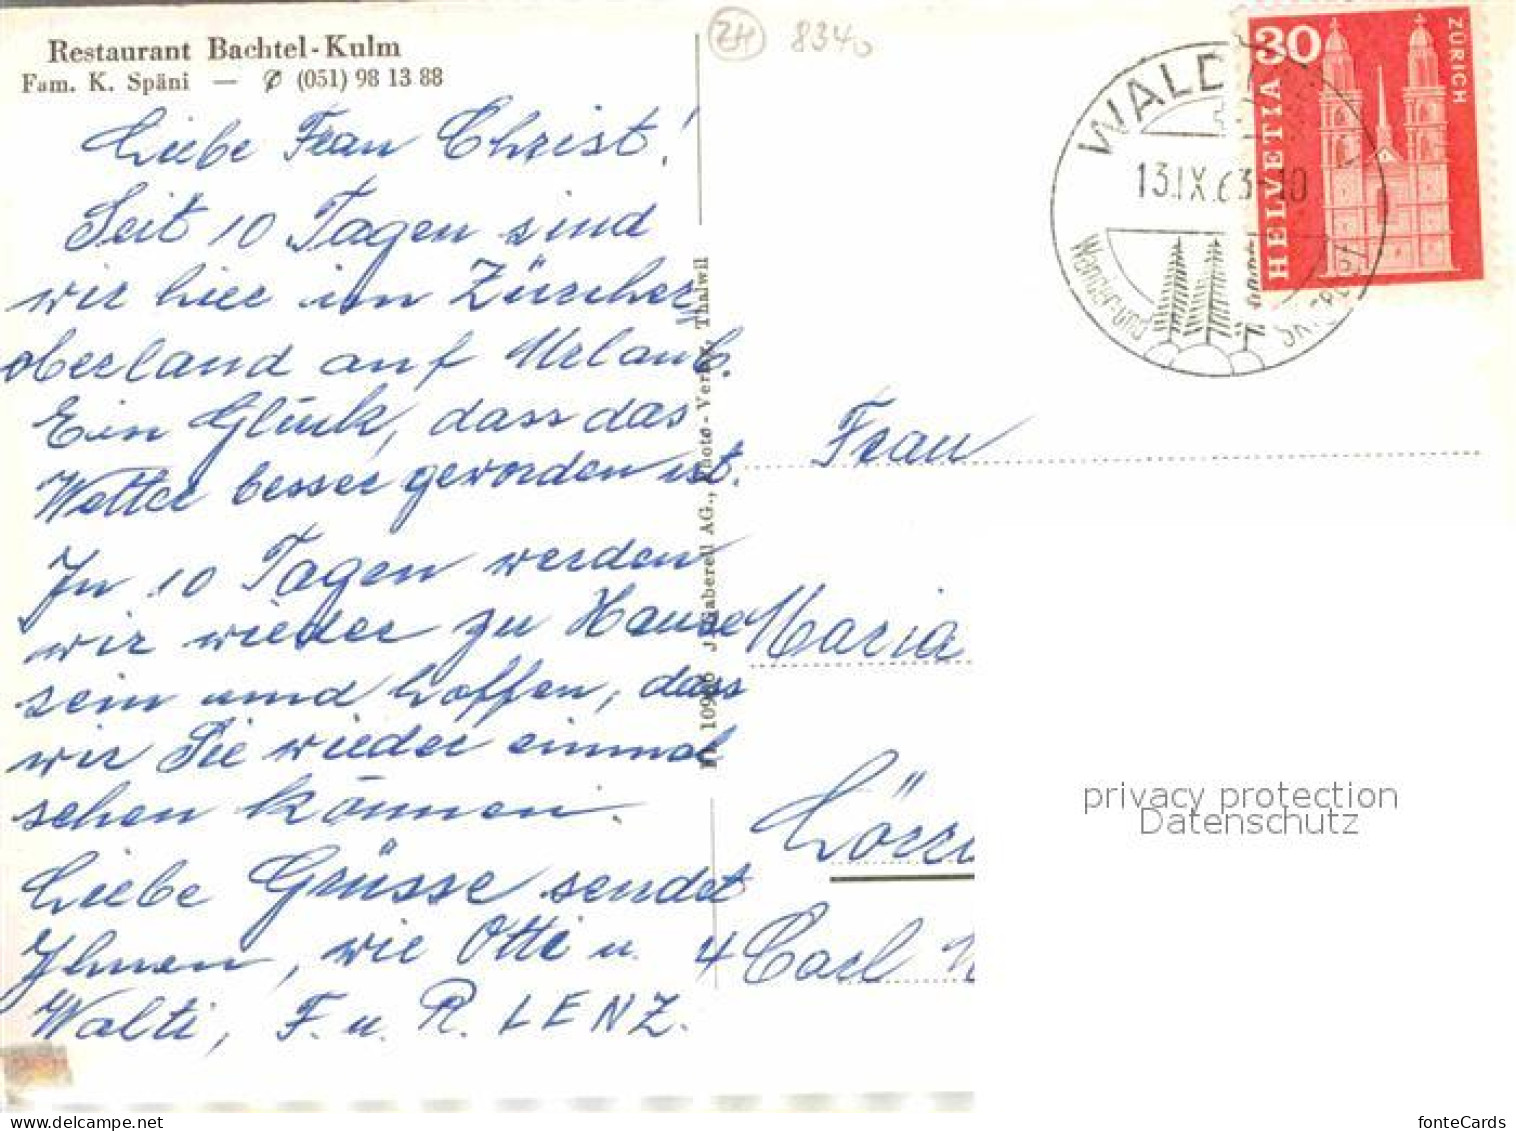 Restaurant Bachtel-Kulm
Fam. K. Späni — ✆ (051) 98 13 88
Liebe Frau Christ!
Seit 10 Tagen sind
wir hier im Zürcher
oberland auf Urlaub.
Ein Glück, dass das
Wetter besser geworden ist.
In 10 Tagen werden
wir wieder zu Hause
sein und hoffen, dass
wir Sie wieder einmal
sehen können.
Liebe Grüsse sendet
Ihnen, wie Otti u.
Walti, F. u. R. LENZ.
Gaberell AG., Photo-Verlag, Thalwil
ZH 8340
WALD
13.IX.63-10
Wander-und
30
HELVETIA
ZÜRICH
Frau
Maria
Lörr
4 Carl
privacy protection
Datenschutz
fonteCards